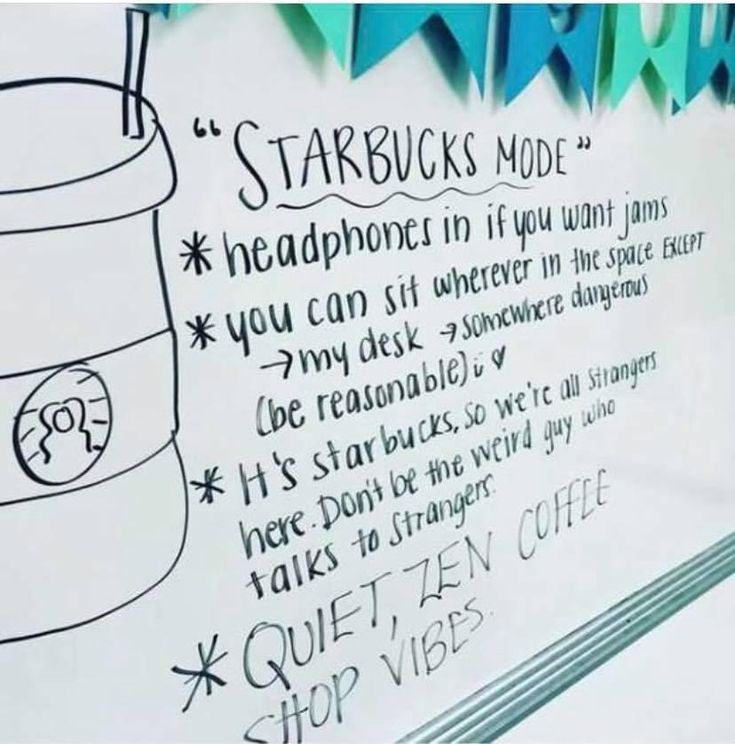 “STARBUCKS MODE”
* headphones in if you want jams
* you can sit wherever in the space EXCEPT
→ my desk → somewhere dangerous
(be reasonable) ü ♡
* It's starbucks, so we're all strangers
here. Don't be the weird guy who
talks to strangers.
* QUIET, ZEN COFFEE
SHOP VIBES.